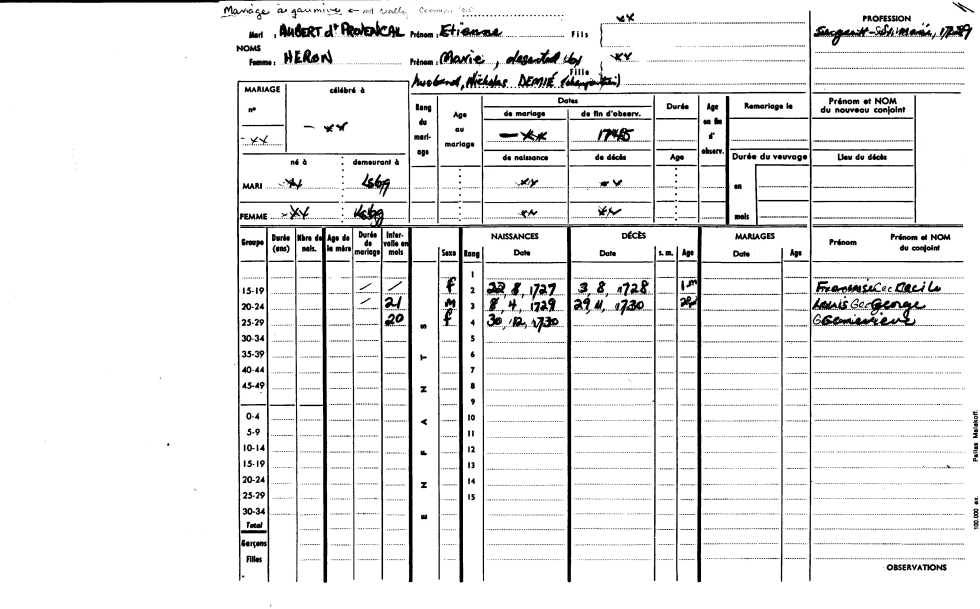 Mariage à gaumine ← not really common law
Mari : AUBERT dt PROVENCAL Prénom : Etienne Fils xx
PROFESSION
NOMS
Femme : HERON Prénom : Marie, deserted by Fille xx
husband, Nicholas DEMIÉ
MARIAGE célébré à
n° - xx
- xx
Rang du mari- age
Age au mariage
Dates
de mariage de fin d'observ.
- xx 1745
Durée
Age en fin d' observ.
Remariage le
Prénom et NOM du nouveau conjoint
né à demeurant à
de naissance de décès Age
Durée du veuvage
Lieu du décès
MARI - xx Lsbg xx xx en
FEMME - xx Lsbg xx xx mois
Groupe Durée (ans) Nbre de nais. Age de la mère Durée de mariage Inter- valle en mois
ENFANTS
Sexe Rang
NAISSANCES Date
DÉCÈS Date s. m. Age
MARIAGES Date Age
Prénom Prénom et NOM du conjoint
1
15-19 / / f 2 22, 8, 1727 3, 8, 1728
20-24 / 21 m 3 8, 4, 1729 29, 11, 1730 Louis George
25-29 20 f 4 30, 12, 1730
30-34 5
35-39 6
40-44 7
45-49 8
9
0-4 10
5-9 11
10-14 12
15-19 13
20-24 14
25-29 15
30-34
Total
Garçons
Filles
OBSERVATIONS
100.000 ex. Pallas Malakoff.